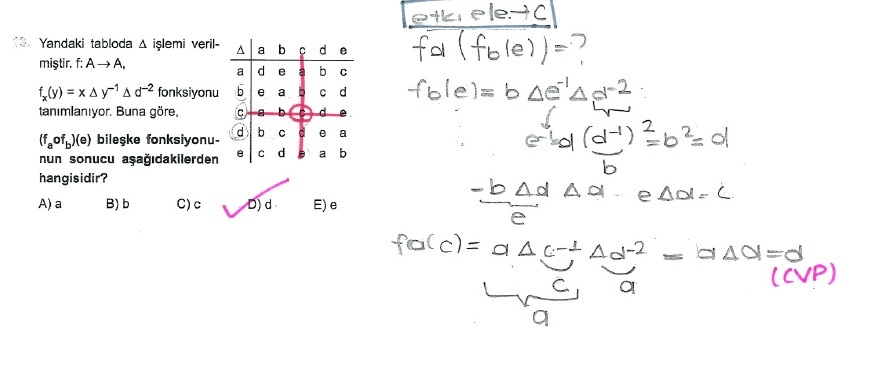 13. Yandaki tabloda Δ işlemi veril-
miştir. f: A → A,
f_x(y) = x Δ y⁻¹ Δ d⁻² fonksiyonu
tanımlanıyor. Buna göre,
(f_aof_b)(e) bileşke fonksiyonu-
nun sonucu aşağıdakilerden
hangisidir?
A) a B) b C) c D) d E) e
Δ a b c d e
a d e a b c
b e a b c d
c a b c d e
d b c d e a
e c d e a b
etki ele.→c
fa(fb(e))=?
fb(e)= b Δ e⁻¹ Δ d⁻²
e⁻¹=a (d⁻¹)²=b²=a
b
b Δ a Δ a e Δ a = c
e
fa(c)= a Δ c⁻¹ Δ d⁻² = a Δ a = d
c a
(CVP)
a